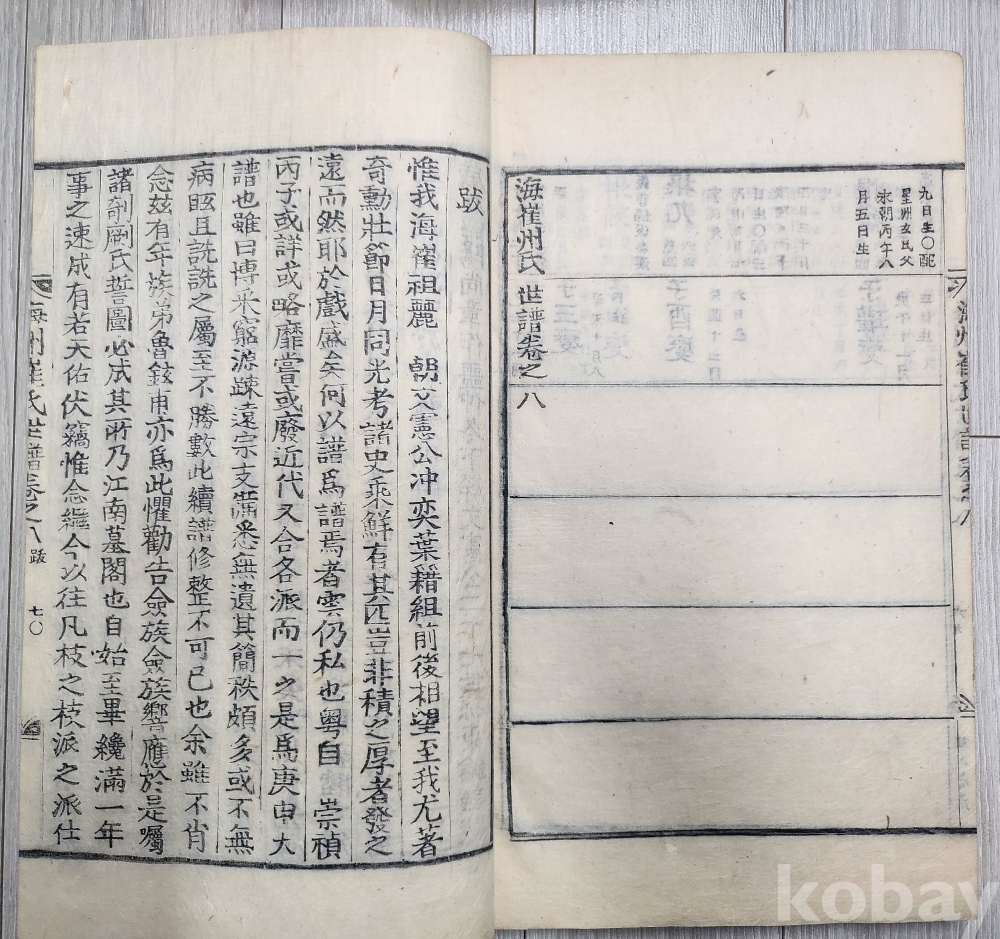 九日生○配
星州玄氏父
永朝丙午八
月五日生
海崔州氏 世譜卷之八
跋
惟我海崔祖麗 朝文憲公冲奕葉籍組前後相望至我尤著
奇勳壯節日月同光考諸史乘鮮有其匹豈非積之厚者發之
遠而然耶於戲盛矣何以譜爲譜焉者雲仍私也粤自 崇禎
丙子或詳或略靡嘗或廢近代又合各派而一之是爲庚申大
譜也雖曰博采窮源疎遠宗支滿悉無遺其簡秩頗多或不無
病眩且詵詵之屬至不勝數此續譜修整不可已也余雖不肖
念玆有年族弟魯鉉甫亦爲此懼勸告僉族僉族響應於是囑
諸剞劂氏誓圖必成其所乃江南墓閣也自始至畢纔滿一年
事之速成有若天佑伏竊惟念繼今以往凡枝之枝派之派仕
海州崔氏世譜卷之八 跋 七〇
kobay